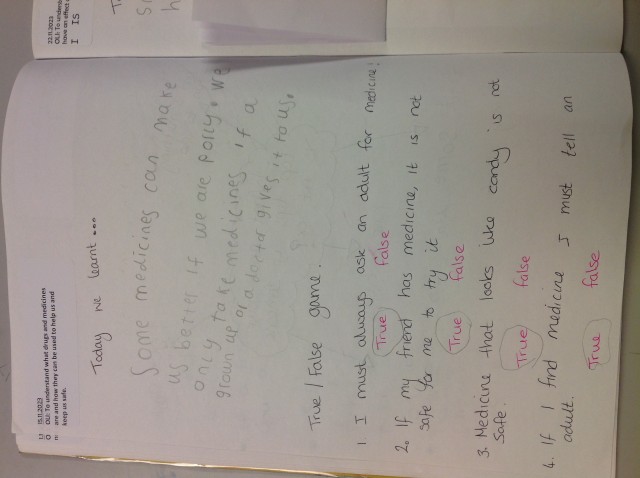 22.11.2023
OLI: To unders
have an effect o
I Is
LI 15.11.2023
O OLI: To understand what drugs and medicines
n: are and how they can be used to help us and
keep us safe.
Today we learnt ...
Some medicines can make
us better if we are porly. We
only to take medicines if a
grown up or a doctor gives it to us.
True / False game.
1. I must always ask an adult for medicine!
True False
2. If my friend has medicine, it is not
safe for me to try it
True False
3. Medicine that looks like candy is not
safe.
True False
4. If I find medicine I must tell an
adult.
True False